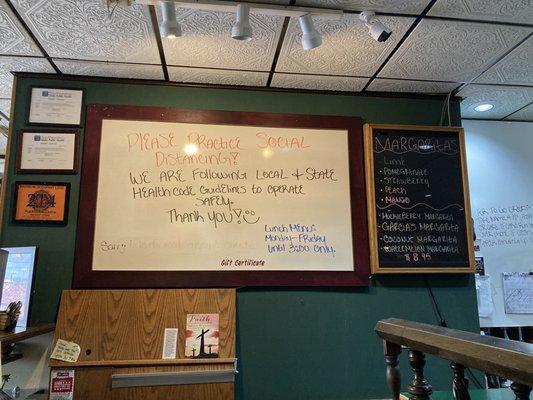 Please Practice Social
Distancing!
We are Following Local & State
Health Code Guidelines to operate
Safely.
Thank you!
Lunch Menu
Monday-Friday
until 3:00 only
Gift Certificate
Margaritas
- Lime
- Pomegranate
- Strawberry
- Peach
- Mango
- Huckleberry Margarita
- Garcia's Margarita
- Coconut Margarita
- Watermelon Margarita
$8.95
Faith